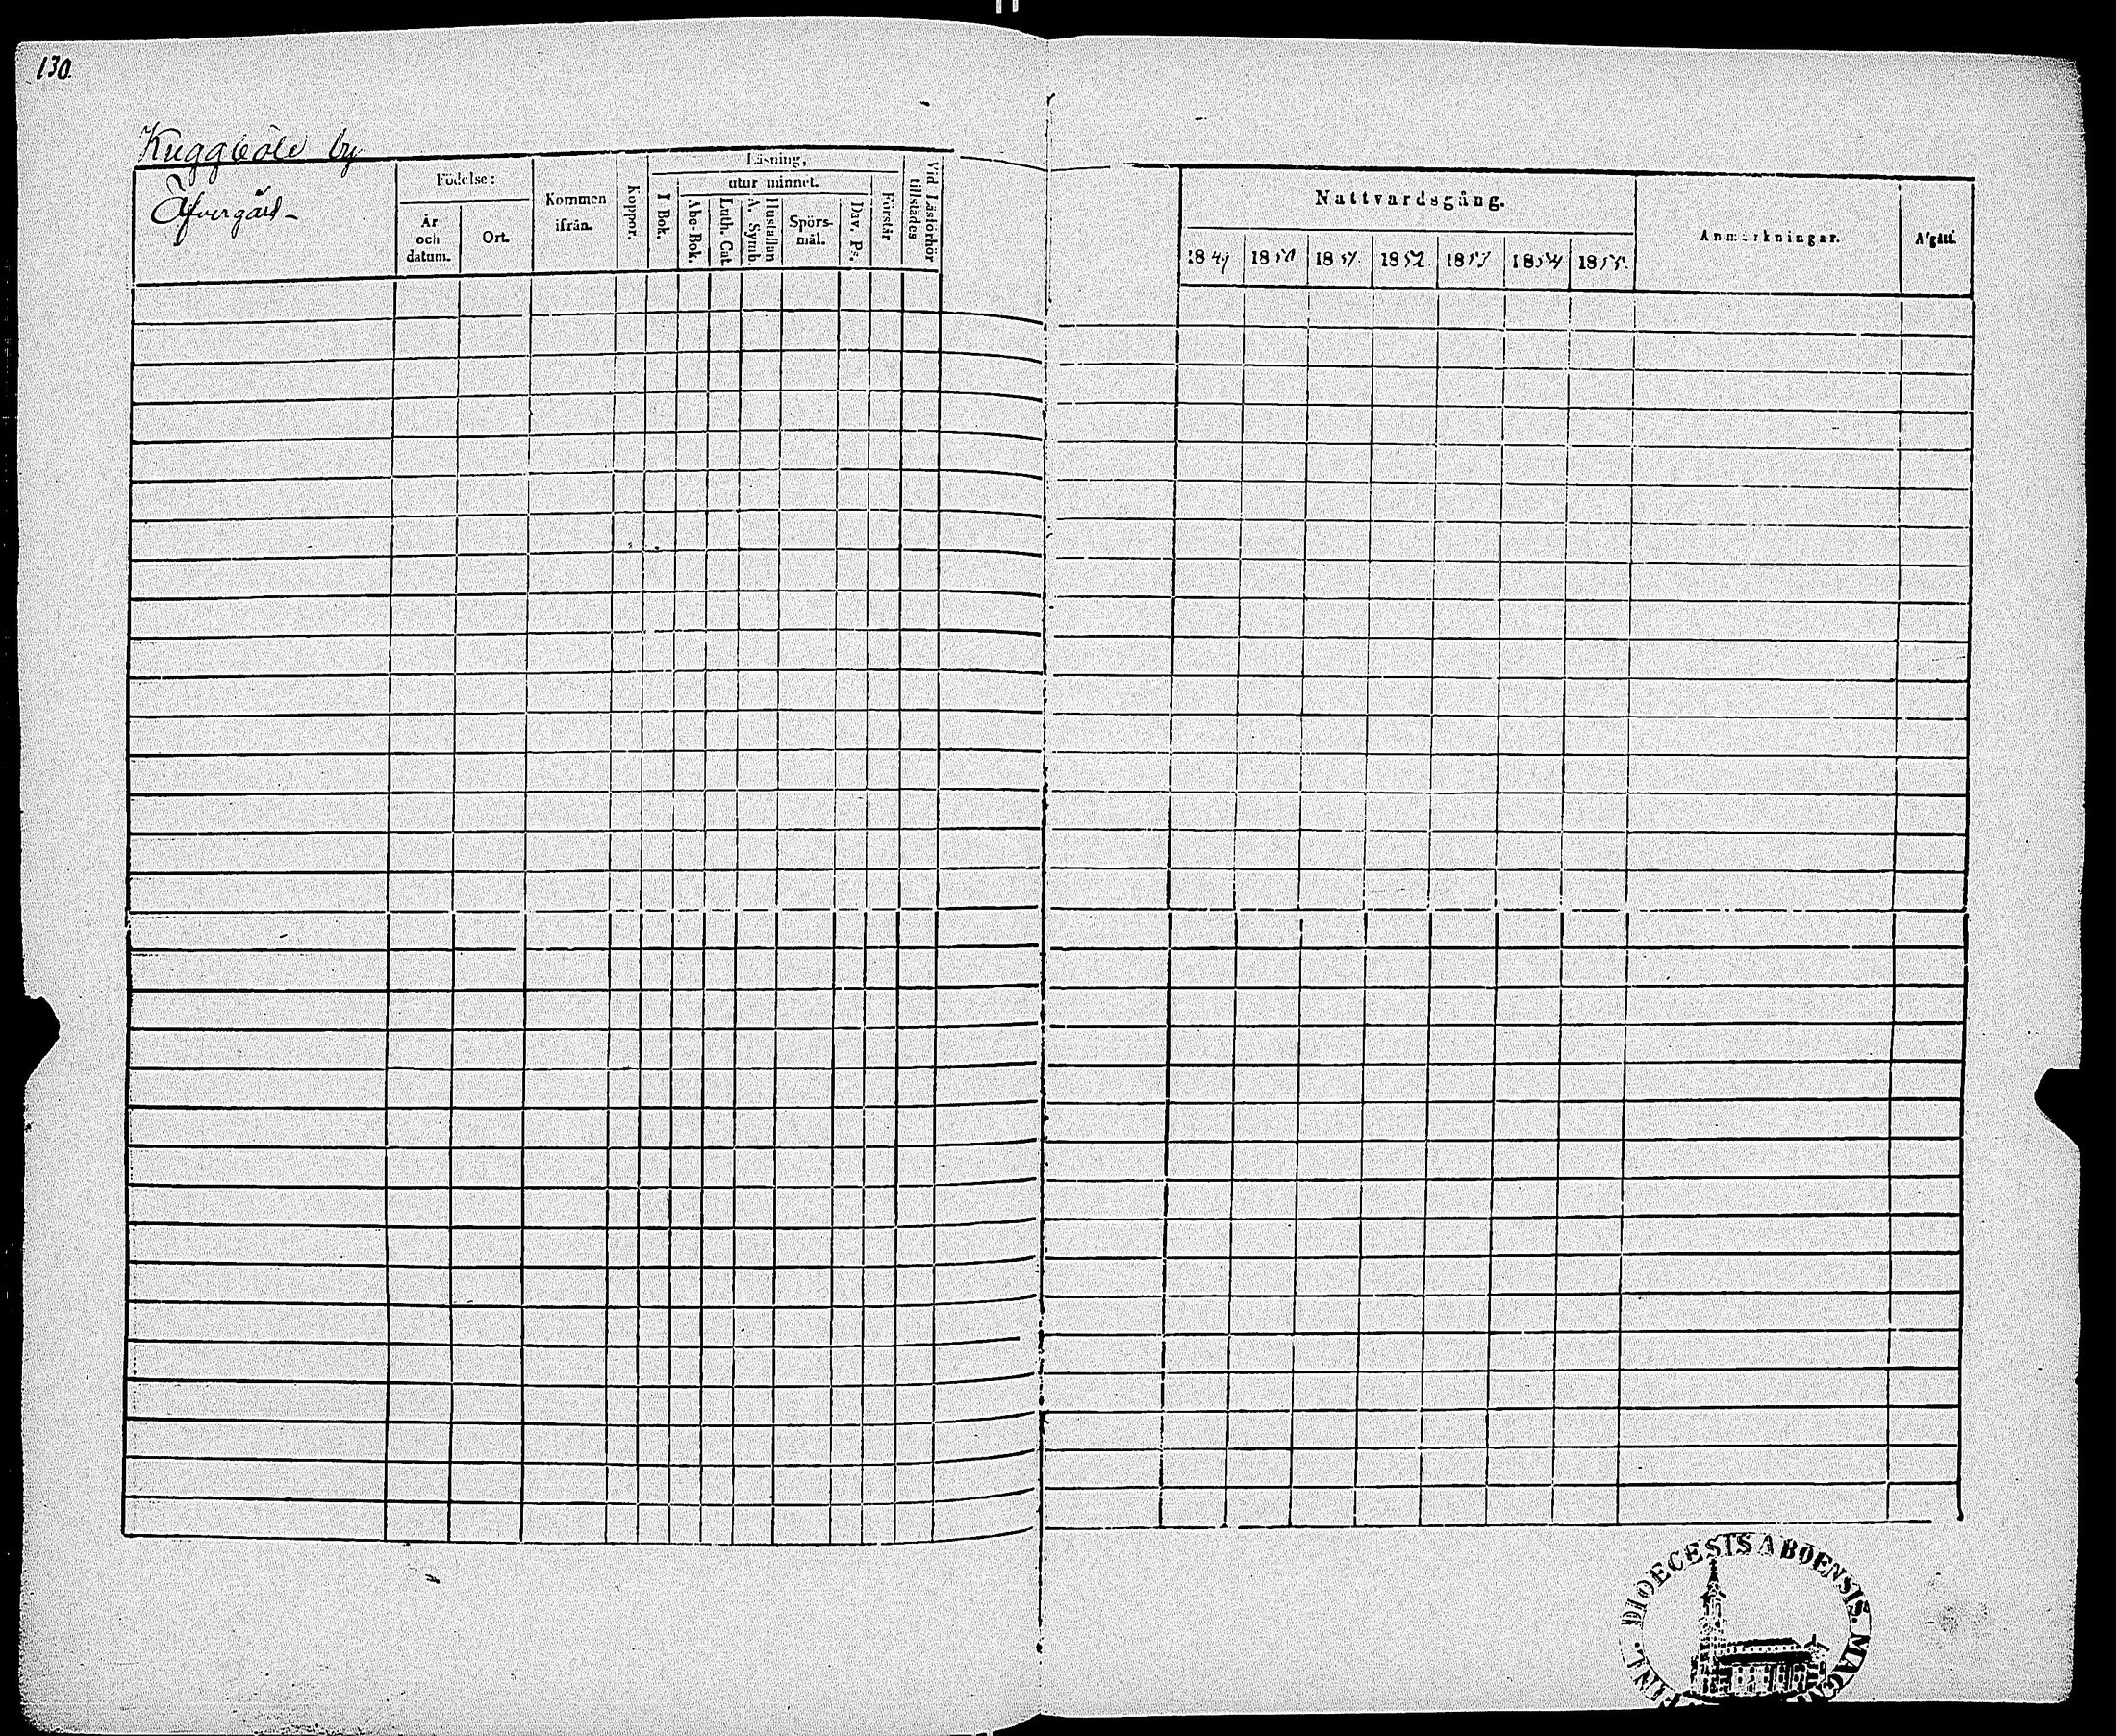 130.
Kuggböle by
Öfvergård
Födelse:
År
och
datum.
Ort.
Kommen
ifrån.
Koppor.
Läsning,
I Bok.
utur minnet.
Abc-Bok.
Luth. Cat.
A. Symb.
Hustaflan
Spörs-
mål.
Dav. Ps.
Förstår
Vid Läsförhör
tillstädes
Nattvardsgång.
1849 1850 1851. 1852. 1853 1854 1855.
Anmärkningar.
Afgått.
FINL. DIOECESIS ABOENSIS. MAGN